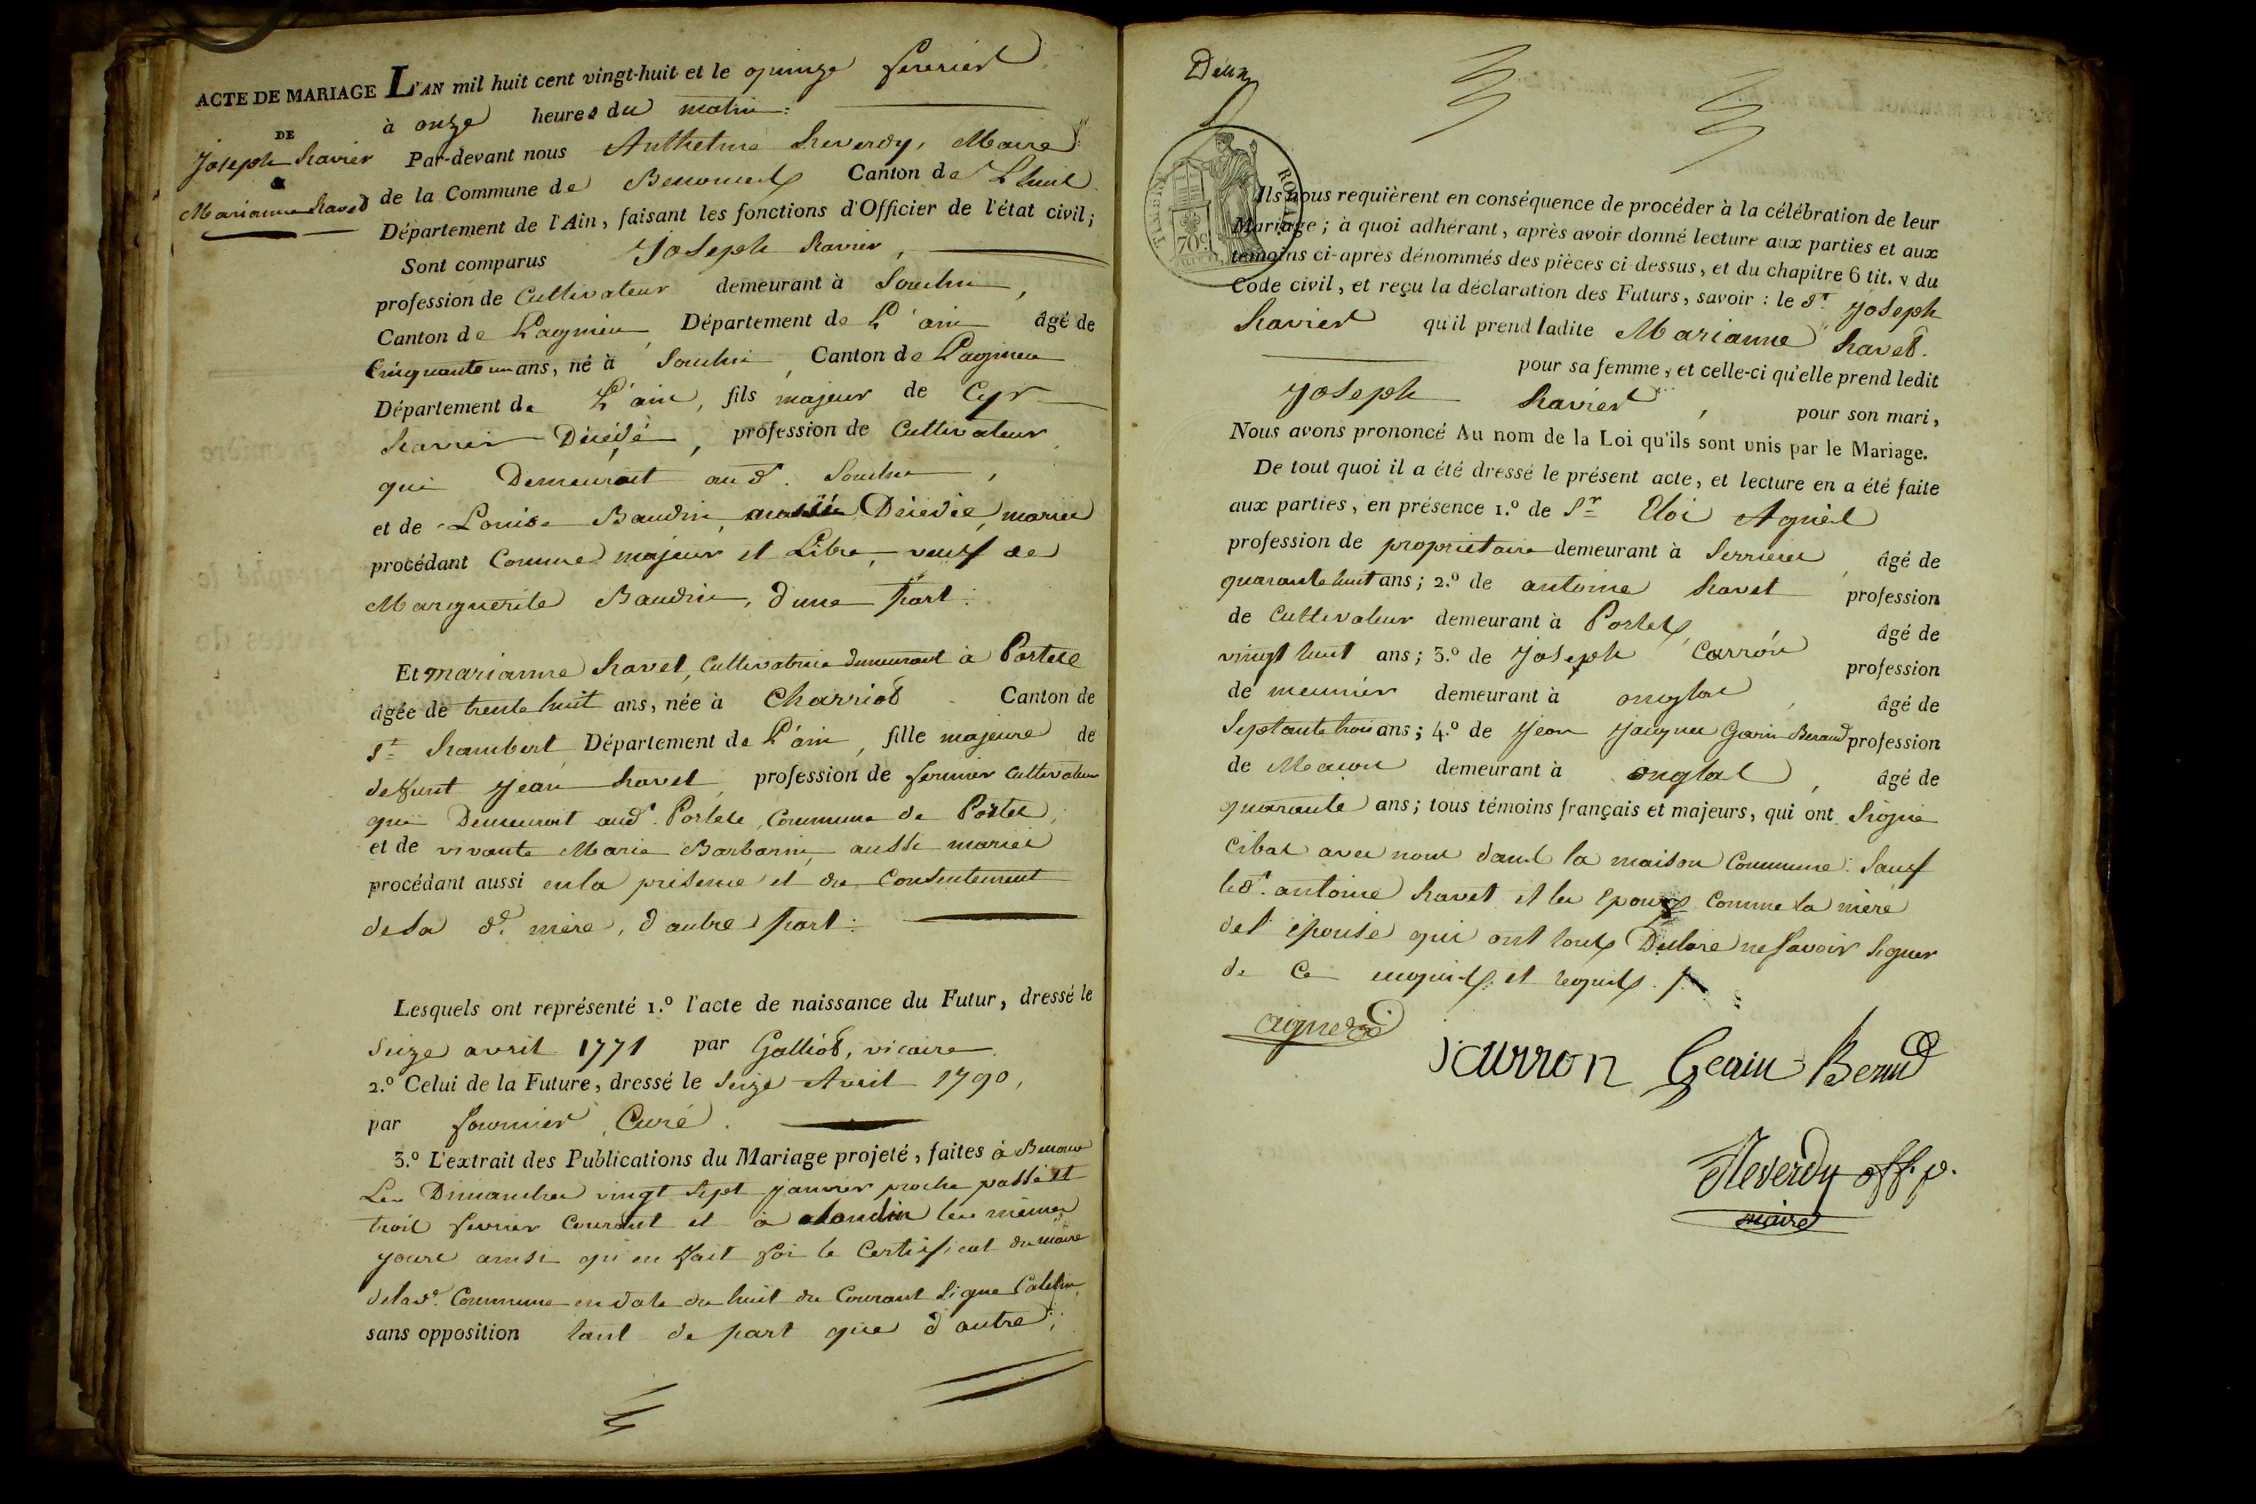 ACTE DE MARIAGE
DE
Joseph Ravier
&
Marianne Ravet
L'AN mil huit cent vingt-huit et le quinze fevrier
à onze heures du matin:
Par-devant nous Reverdy, Maire
de la Commune de Benonces Canton de Lhuis
Département de l'Ain, faisant les fonctions d'Officier de l'état civil;
Sont comparus Joseph Ravier,
profession de Cultivateur demeurant à Souclin,
Canton de Lagnieu, Département de L'ain âgé de
Cinquante un ans, né à Souclin, Canton de Lagnieu
Département de L'ain, fils majeur de Cyr
Ravier Décédé, profession de Cultivateur
qui Demeurait aud. Souclin,
et de Louise Baudin, aussi Décédée, mariés
procédant Comme majeur et Libre, veuf de
Marguerite Baudin, d'une part:
Et marianne Ravet, Cultivatrice demeurant à Portes
âgée de trente huit ans, née à Charriot Canton de
St. Rambert, Département de L'ain, fille majeure de
defunt Jean Ravet, profession de fermier Cultivateur
qui Demeuroit aud. Portes, Commune de Portes,
et de vivante Marie Barbarin, aussi mariés
procédant aussi en la présence et du Consentement
de sa de. mère, d'autre part:
Lesquels ont représenté 1.º l'acte de naissance du Futur, dressé le
Seize avril 1771 par Galliot, vicaire.
2.º Celui de la Future, dressé le Seize Avril 1790,
par fournier, Curé.
3.º L'extrait des Publications du Mariage projeté, faites à Benonces
Les Dimanches vingt Sept janvier proche passé et
trois fevrier Courant et à Souclin les mêmes
jours ainsi qu'en fait foi le Certificat du maire
de lad. Commune en date du huit du Courant Signé
sans opposition tant de part que d'autre;
Deux
TIMBRE ROYAL
70 c
Ils nous requièrent en conséquence de procéder à la célébration de leur
Mariage; à quoi adhérant, après avoir donné lecture aux parties et aux
témoins ci-après dénommés des pièces ci-dessus, et du chapitre 6 tit. v du
Code civil, et reçu la déclaration des Futurs, savoir: le Sr. Joseph
Ravier qu'il prend ladite Marianne Ravet.
pour sa femme, et celle-ci qu'elle prend ledit
Joseph Ravier, pour son mari,
Nous avons prononcé Au nom de la Loi qu'ils sont unis par le Mariage.
De tout quoi il a été dressé le présent acte, et lecture en a été faite
aux parties, en présence 1.º de Sr. Eloi Agniel
profession de propriétaire demeurant à Serrieres, âgé de
quarante huit ans; 2.º de antoine Ravet profession
de Cultivateur demeurant à Portes, âgé de
vingt huit ans; 3.º de Joseph Carron profession
de meunier demeurant à onglas, âgé de
Septante trois ans; 4.º de Jean Jacques Garin Beraud profession
de Maçon demeurant à onglas, âgé de
quarante ans; tous témoins français et majeurs, qui ont Signé
cibas avec nous dans la maison Commune: Sauf
led. antoine Ravet et les Epoux Comme la mère
de l'épouse qui ont tous Déclaré ne Savoir Signer
de Ce enquis et requis.
carron
Reverdy off. p.
maire